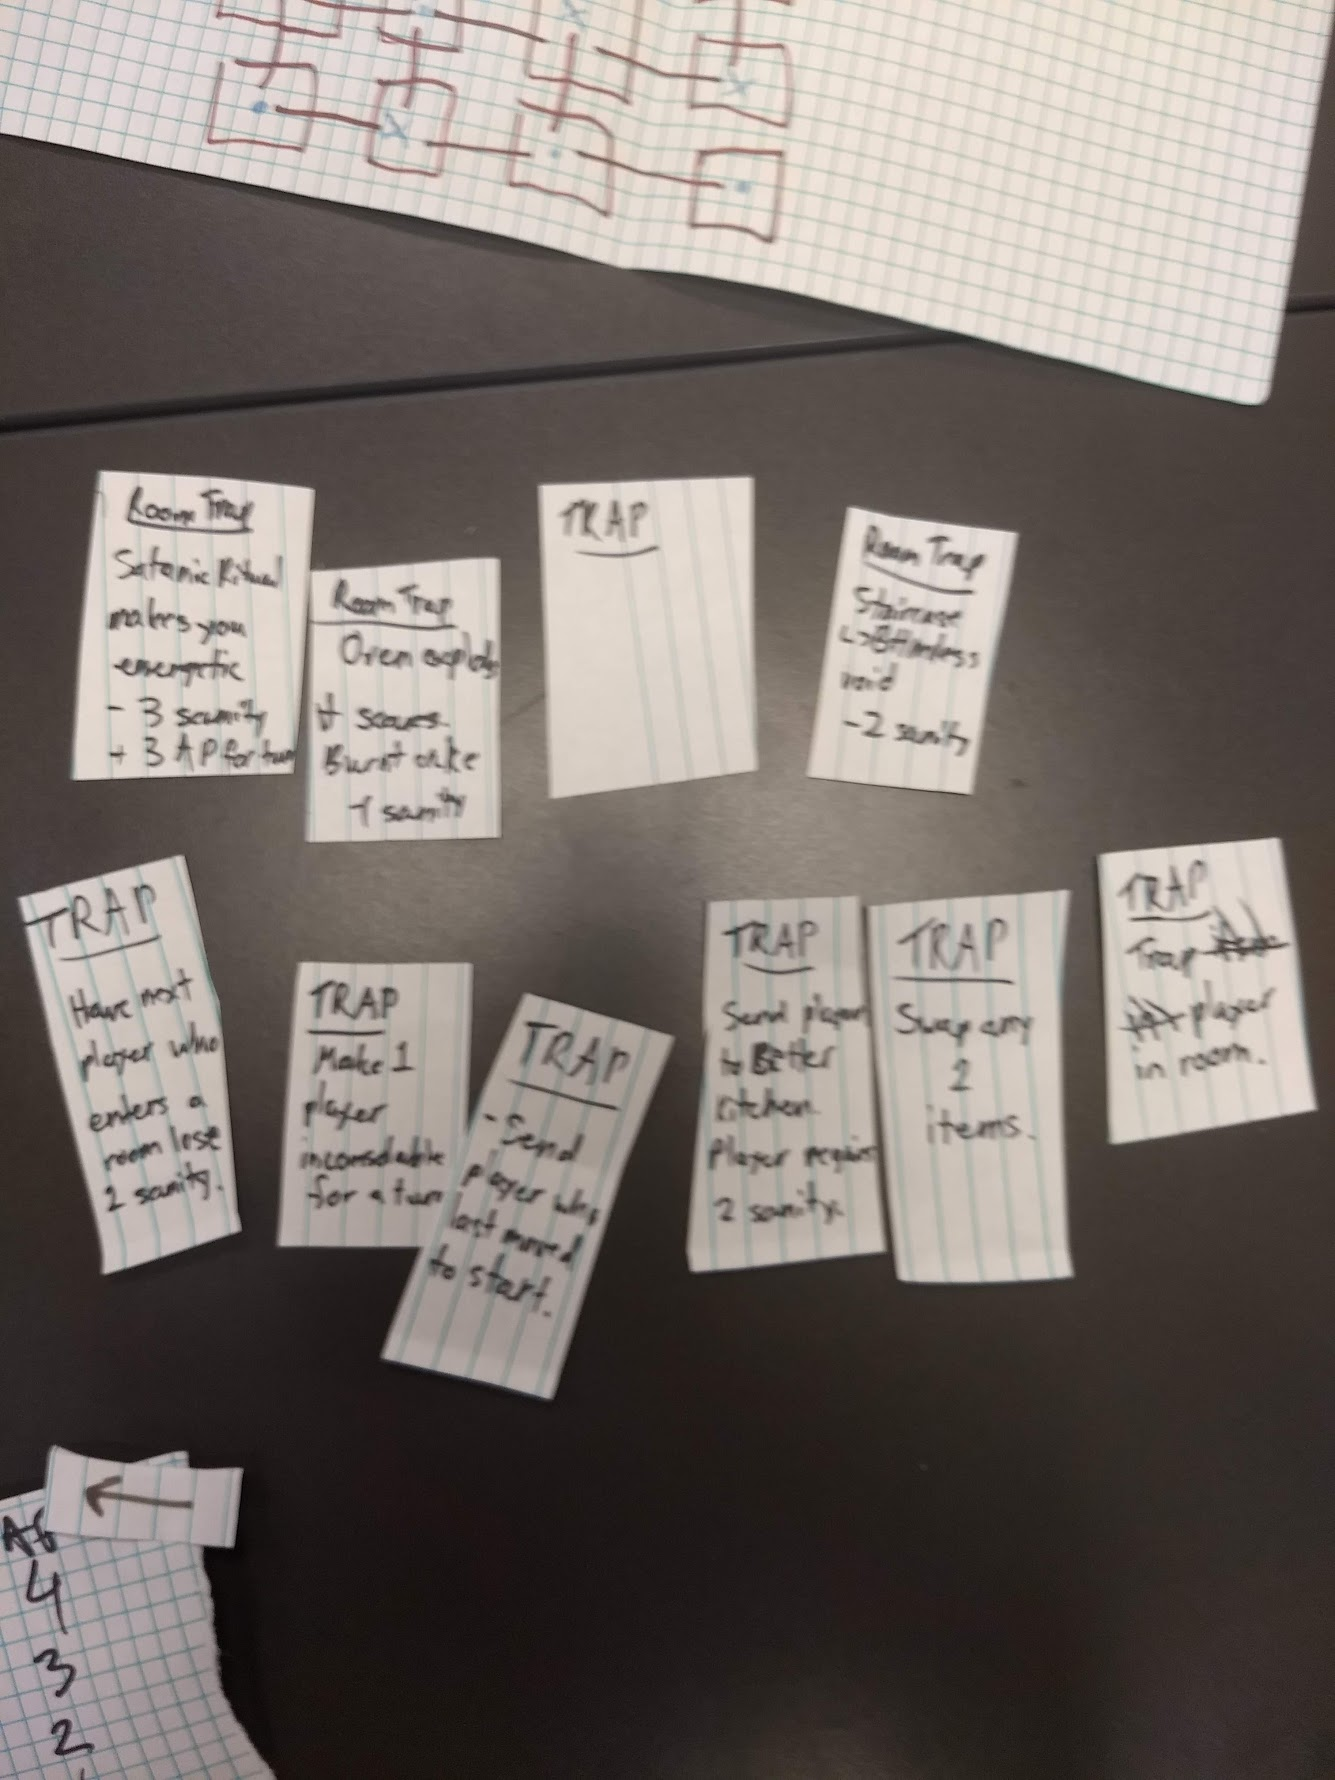 Room Trap
Satanic Ritual
makes you
energetic
- 3 sanity
+ 3 AP for turn
Room Trap
Oven explods
scares
Burnt cake
-1 sanity
TRAP
Room Trap
Staircase
void
-2 sanity
TRAP
Have next
player who
enters a
room lose
2 sanity.
TRAP
Make 1
player
inconsolable
for a turn
TRAP
- Send
player who
last moved
to start.
TRAP
Send player
to Better
kitchen.
Player requires
2 sanity.
TRAP
Swap any
2
items.
TRAP
Trap
player
in room.
4
3
2